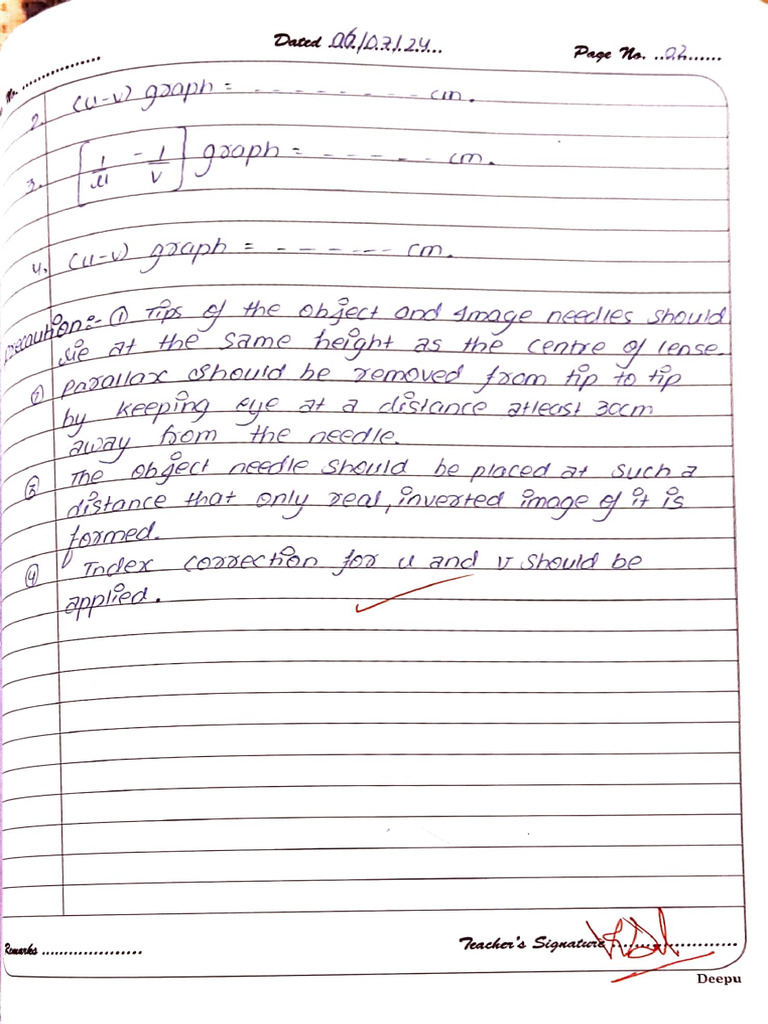 Dated 06/07/24...
Page No. ..02......
No. ..................
2. (u-v) graph = - - - - - - - - cm.
3. [1/u - 1/v] graph = - - - - - cm.
4. (u-v) graph = - - - - - - cm.
precaution:- ① Tips of the object and image needles should
lie at the same height as the centre of lense.
② parallax should be removed from tip to tip
by keeping eye at a distance atleast 30cm
away from the needle.
③ The object needle should be placed at such a
distance that only real, inverted image of it is
formed.
④ Index correction for u and v should be
applied.
Remarks .....................
Teacher's Signature ......................
Deepu